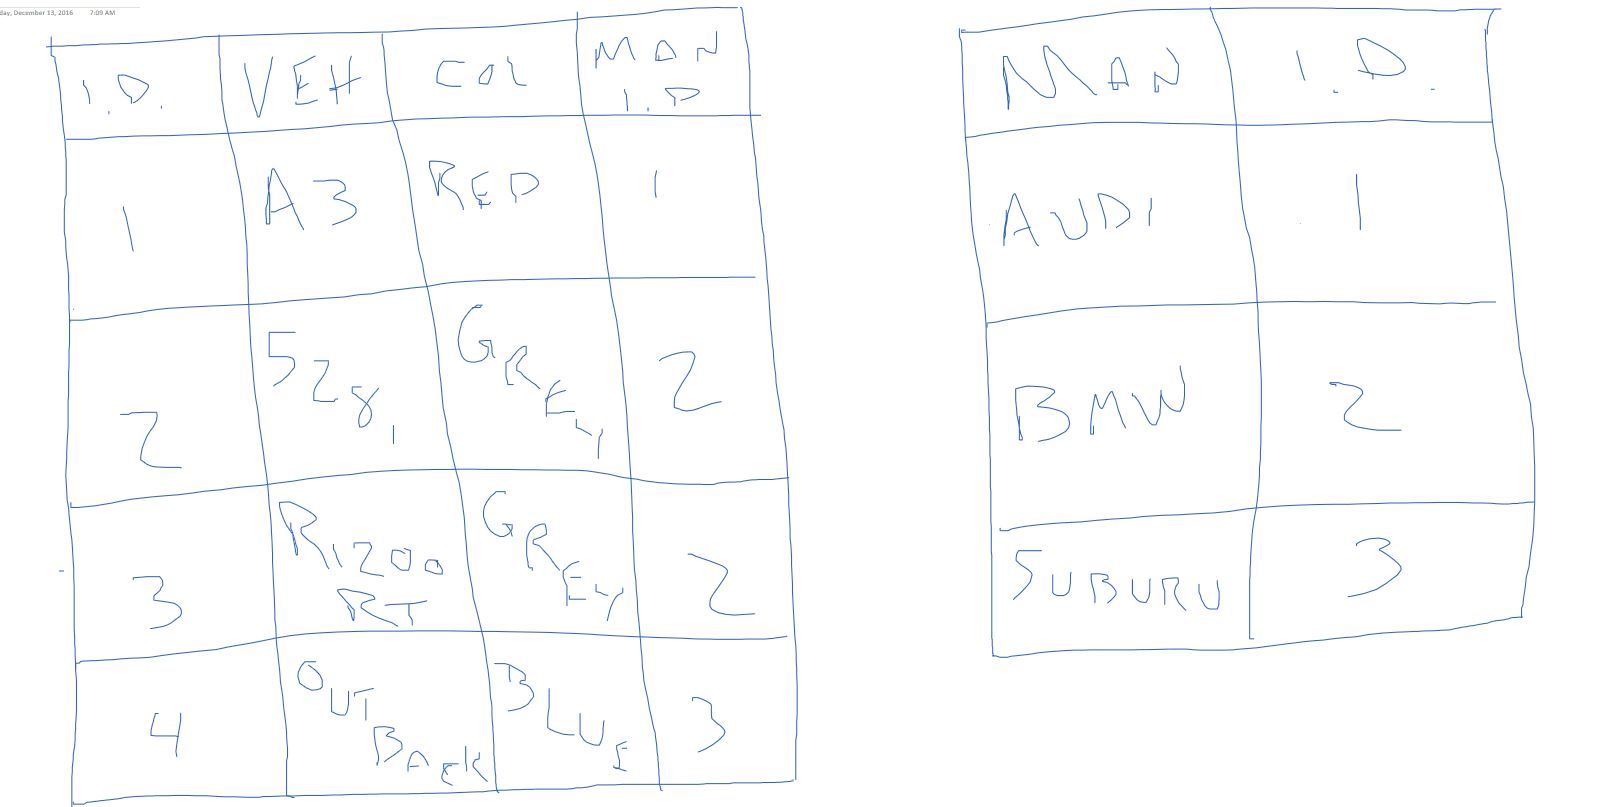 day, December 13, 2016 7:09 AM
I.D. VEH COL MAN I.D
1 A3 RED 1
2 528i GREY 2
3 R1200 RT GREY 2
4 OUTBACK BLUE 3
MAN I.D.
AUDI 1
BMW 2
SUBURU 3